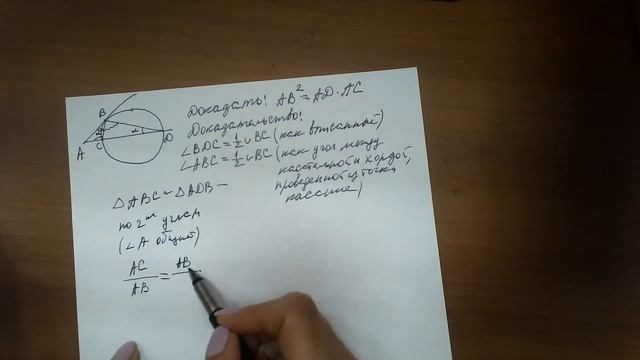 Доказать! AB² = AD · AC
Доказательство!
∠BDC = ½ ∪ BC (как вписанный)
∠ABC = ½ ∪ BC (как угол между
касательной и хордой,
проведенной из точки
касание)
△ABC ~ △ADB —
по 2ум углам
(∠A общий)
AC / AB = AB
B
A
C
D
α